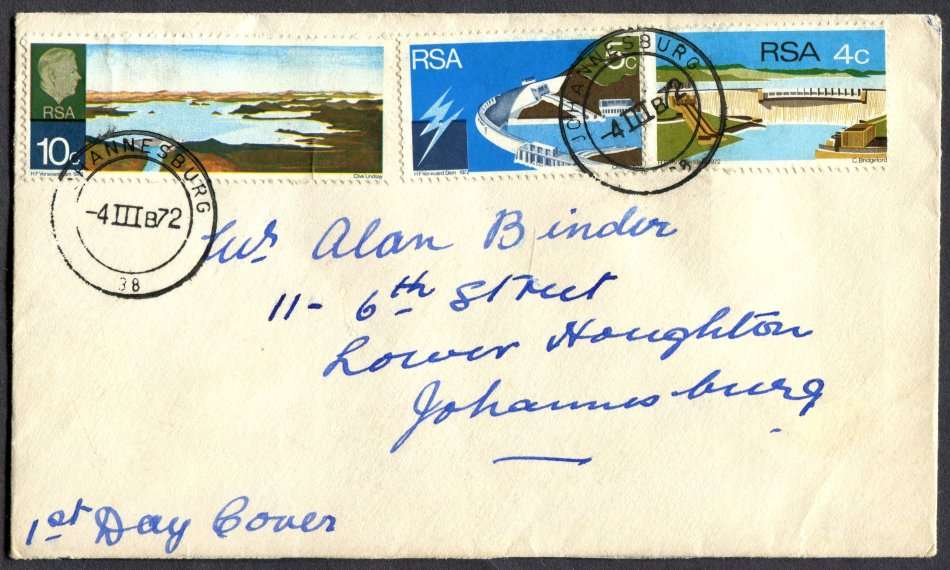 RSA
10c
H.F. Verwoerd Dam
Clive Lindsay
RSA
5c
H.F. Verwoerd Dam 1972
RSA 4c
1972
C. Bridgeford
JOHANNESBURG
-4 III B 72
JOHANNESBURG
-4 III B 72
38
Alan Binder
11 - 6th Street
Lower Houghton
Johannesburg
1st Day Cover